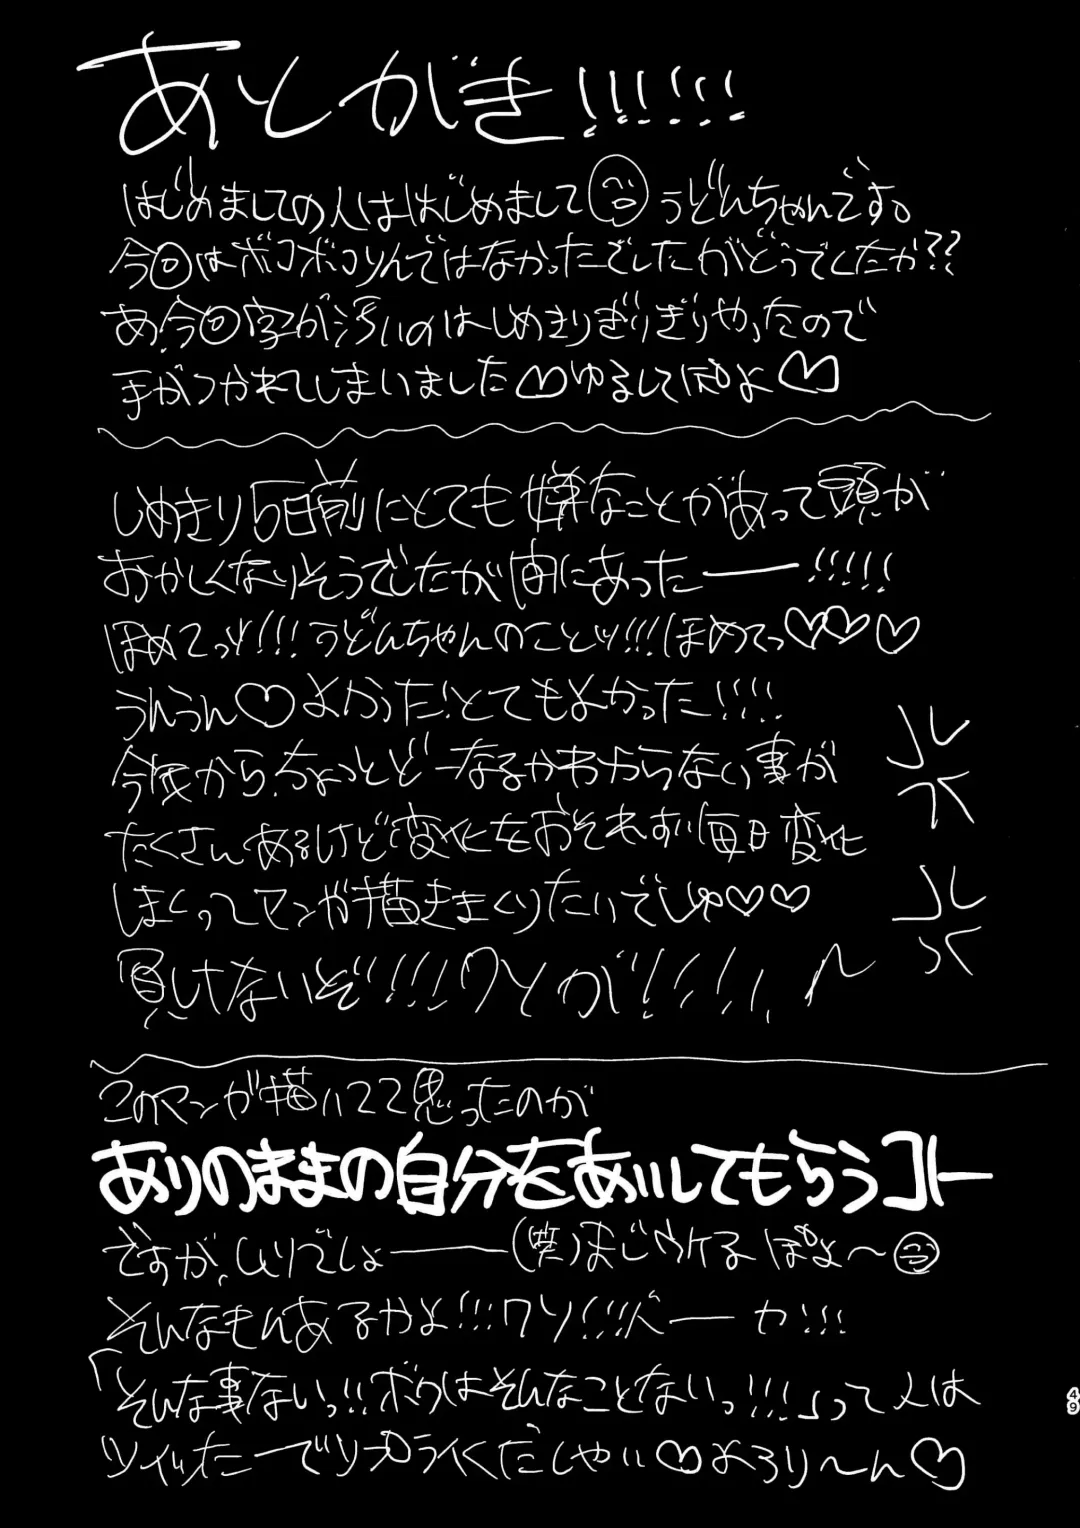 あとがき!!!!!!
はじめましての人ははじめまして うどんちゃんです。
今回はボコボコりんではなかったでしたがどうでしたか??
あ、今回字が汚いのはしめきりぎりぎりやったので
手がつかれてしまいました♡ゆるしてぽよ♡
しめきり5日前にとても嫌なことがあって頭が
おかしくなりそうでしたが間にあったー!!!!!
ほめてっツ!!!うどんちゃんのことッ!!!ほめてっ♡♡♡
うんうん♡よかった!とてもよかった!!!!
今後から、ちょっとどーなるかわからない事が
たくさんあるけど変化をおそれずに毎日変化
しまくってマンガ描きまくりたいでしゅ♡♡
負けないぞ!!!クソが!!!!
このマンガ描いてて思ったのが
ありのままの自分をあいしてもらうコトー
ですが、ムリでしょー(笑)まじウケるぽよ〜
そんなもんあるかよ!!!クソ!!!バーカ!!!
「そんな事ないっ!!ボクはそんなことないっ!!!」って人は
ツイッたーでリプライくだしゃい♡よろり〜ん♡
49